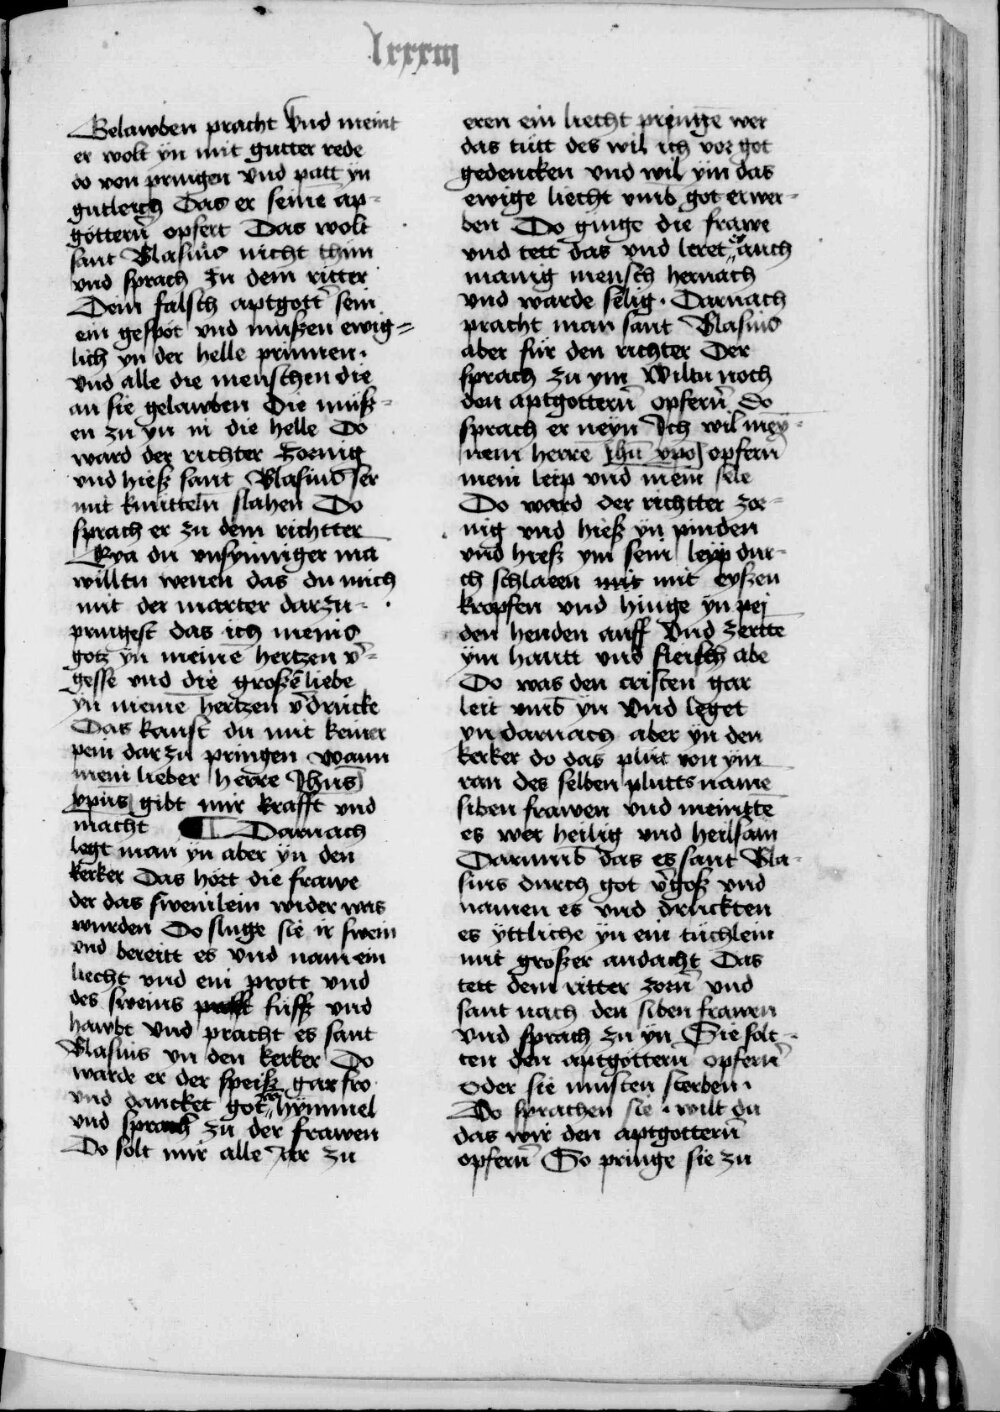 lxxxiij
Gelawben pracht Vnd meint
er wolt yn mit gutter rede
do von pringen vnd patt yn
gutleich Das er seine ap-
göttern̄ opfert Das wolt
sant Blasius nicht thun
vnd sprach zu dem ritter
Dein falsch aptgott sein
ein gespöt vnd mußen ewig=
lich yn der helle prinnen.
vnd alle die menschen die
an sie gelawben Die müß-
en zu yn in die helle Do
ward der richter Zornig
vnd hieß sant Blasius ser
mit knitteln̄ slahen Do
sprach er zu dem richtter
Eya du vnsynniger ma
willtu wenen das du mich
mit der marter darzu-
pringest das ich meins
gotz yn meinē hertzen v̄-
gesse vnd die großē liebe
yn meinē hertzen v̄drücke
Das kanst du mit keiner
pein dar zu pringen Wann
mein lieber herre Jhūs
xpūs gibt mir krafft vnd
macht ¶ Darnach
legt man yn aber yn den
kerker Das hört die frawe
der das sweinlein wider was
wurden Do sluge sie ir swein
vnd bereitt es vnd nam ein
liecht vnd ein prott vnd
des sweins füß vnd
hawbt vnd pracht es sant
Blasius yn den kerker Do
warde er der speiß gar fro
vnd dancket got von hymmel
vnd sprach zu der frawen
Do solt mir alle Jar zu
eren ein liecht pringē wer
das tütt des wil ich vor got
gedencken vnd wil ym das
ewige liecht vmb got erwer-
ben Do ginge die frawe
vnd tett das vnd leret es auch
manig mensch hernach
vnd warde selig. Darnach
pracht man sant Blasius
aber für den richter Der
sprach zu ym Wiltu noch
den aptgottern̄ opfern̄ Do
sprach er neyn Ich wil mey-
nem herrē Jhū xpo opfern̄
mein leip vnd mein sele
Do ward der richtter zor-
nig vnd hieß yn pinden
vnd hieß ym sein leyp dur-
ch schlaeen mit mit eyßen
kropfen vnd hinge yn pej
den henden auff Vnd zertte
ym hautt vnd fleisch abe
Do was den cristen gar
leit vmb yn Vnd leget
yn darnach aber yn den
kerker do das plut von ym
ran des selben plutts namē
siben frawen vnd meingtē
es wer heilig vnd heilsam
Darumb das es sant Bla-
sius durch got v̄goß vnd
namen es vnd drückten
es yttliche yn ein tüchlein
mit großer andacht Das
tett dem ritter zorn̄ vnd
sant nach den siben frawen
Vnd sprach zu yn Sie solt-
ten den aptgöttern̄ opfern̄
oder sie musten sterben.
Do sprachen sie. wilt du
das wir den aptgottern̄
opfern̄ So pringe sie zu